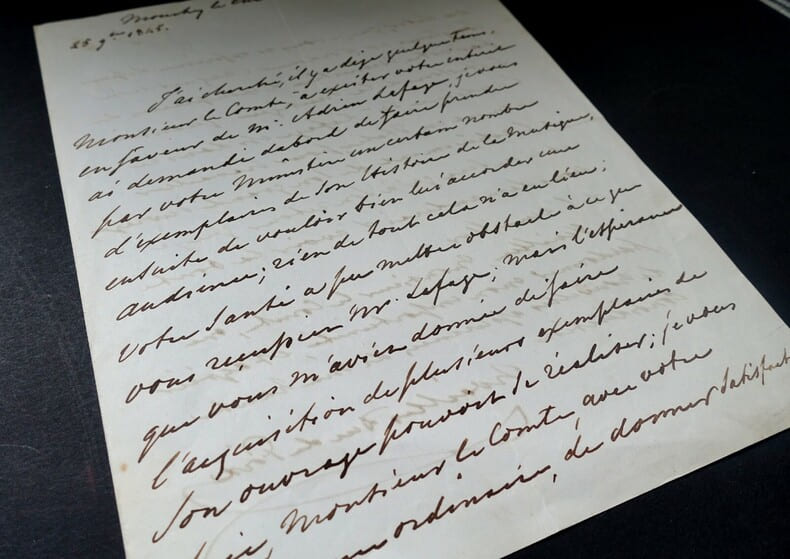 Mouchy le
25 9bre 1845.
J'ai cherché, il y a déjà quelque tems,
Monsieur le Comte, a exciter votre intérêt
en faveur de Mr. Adrien Lafage, je vous
ai demandé d'abord de faire prendre
par votre Ministère un certain nombre
d'exemplaires de son Histoire de la Musique,
ensuite de vouloir bien lui accorder une
audience; rien de tout cela n'a eu lieu;
votre Santé a pu mettre obstacle à ce que
vous reçussiez Mr. Lafage; mais l'espérance
que vous m'aviez donnée de faire
l'acquisition de plusieurs exemplaires de
Son ouvrage pouvoit se réaliser; je vous
Monsieur le Comte, avec votre
ordinaire, de donner satisfact